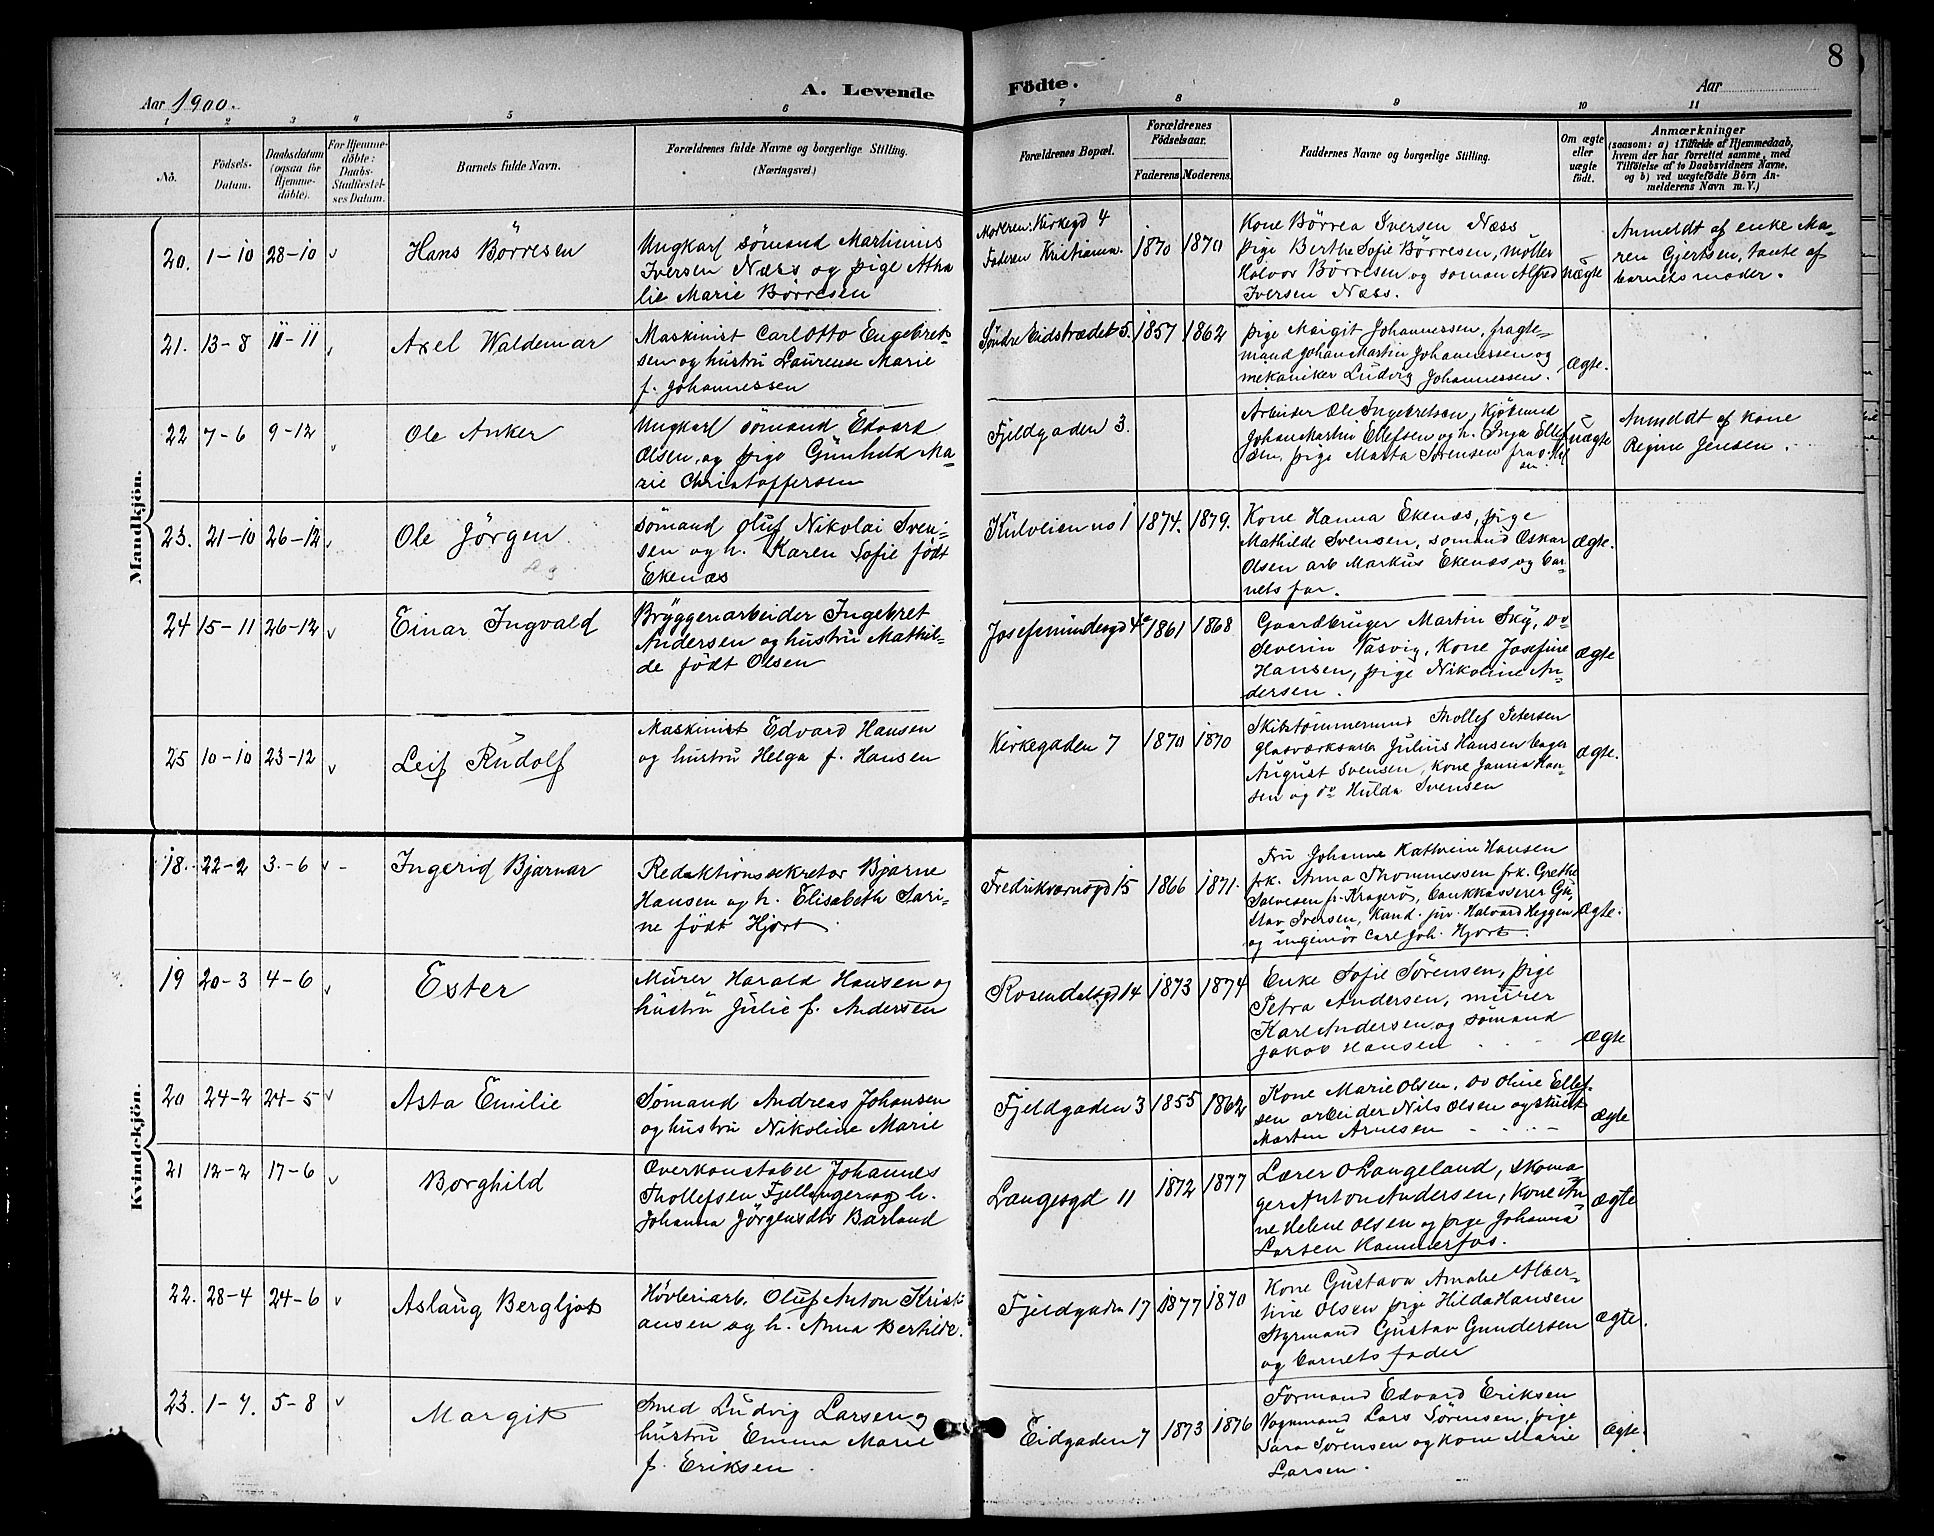 8
Aar 1900.
A. Levende
Födte.
Aar
1 2 3 4 5 6 7 8 9 10 11
Nö.
Födsels-
Datum.
Daabsdatum
(ogsaa for
Hjemme-
döbte).
For Hjemme-
döbte:
Daabs-
Stadfæstel-
ses Datum.
Barnets fulde Navn.
Forældrenes fulde Navne og borgerlige Stilling.
(Næringsvei.)
Forældrenes Bopæl.
Forældrenes
Födselsaar.
Faderens Moderens.
Faddernes Navne og borgerlige Stilling.
Om ægte
eller
uægte
födt.
Anmærkninger
(saasom: a) i Tilfælde af Hjemmedaab,
hvem der har forrettet samme, med
Tilföielse af to Daabsvidners Navne,
og b) ved uægtefödte Börn An-
melderens Navn m. V.)
Mandkjön.
20. 1-10 28-10 v Hans Börresen
Ungkarl sömand Martinius
Iversen Næss og pige Atha
lie Marie Börresen
Moderen: Kirkegd 4
Faderen Kristiania.
1870 1870
Kone Börrea Iversen Næss
pige Berthe Sofie Börresen, möller
Halvor Börresen og söman Alfred
Iversen Næss.
uægte
Anmeldt af enke Ma-
ren Gjertsen, tante af
barnets moder.
21. 13-8 11-11 v Axel Waldemar
Maskinist Carl Otto Engebret-
sen og hustru Laurense Marie
f. Johannessen
Söndre Eidstrædet 5. 1857 1862
pige Margit Johannessen, fragte-
mand Johan Martin Johannessen og
mekaniker Ludvig Johannessen.
ægte.
22 7-6 9-12 v Ole Anker
Ungkarl sömand Edvard
Olsen, og pige Gunhild Ma-
rie Christoffersen
Fjeldgaden 3.
Arbeider Ole Ingebretsen,
Johan Martin Ellefsen og h. Inga Ellef
sen, pige Marta Sörensen
uægte
Anmeldt af kone
Regine Jensen.
23. 21-10 26-12 v Ole Jörgen
sömand Oluf Nikolai Sven-
sen og h. Karen Sofie födt
Ekenæs
Kulveien no 1 1874. 1879.
Kone Hanna Ekenæs, pige
Mathilde Svensen, sömand Oskar
Olsen arb Markus Ekenæs og bar-
nets far.
ægte.
24 15-11 26-12 v Einar Ingvald
Bryggenarbeider Ingebret
Andersen og hustru Mathil-
de födt Olsen
Josefmindesgd 4c 1861 1868
Gaardbruger Martin Sky, do
Severin Tasvig, Kone Josefine
Hansen, pige Nikoline An-
dersen.
ægte
25 10-10 23-12 v Leif Rudolf
Maskinist Edvard Hansen
og hustru Helga f. Hansen
Kirkegaden 7 1870 1870
Skibstömmermnd Thollef Petersen
glasværksarb Julius Hansen bager
August Svensen, kone Janna Han-
sen og do Hulda Svensen
ægte.
Kvindekjön.
18. 22-2 3-6 v - Ingerid Bjarnar
Redaktionssekretær Bjarne
Hansen og h. Elisabeth Sari-
ne födt Hjort
Fredriksværnsgd 15 1866 1871.
Fru Johanne Kathrine Hansen
frk. Anna Thommessen frk. Grethe
Salvesen fr. Kragerö, bankkasserer Gu-
stav Iversen, Kand. jur. Halvard Heggen
og ingeniör Carl Joh. Hjort.
ægte.
19 20-3 4-6 v Ester
Murer Harald Hansen og
hustru Julie f. Andersen
Rosendalsgd 14 1873 1874
Enke Sofie Sörensen, pige
Petra Andersen, murer
Karl Andersen og sömand
Jakob Hansen
ægte
20 24-2 24-5 v Asta Emilie
Sömand Andreas Johansen
og hustru Nikoline Marie
Fjeldgaden 3 1855 1862
Kone Marie Olsen, do Oline Ellef-
sen arbeider Nils Olsen og
Morten Arnesen
ægte
21 12-2 17-6 v Borghild
Overkonstabel Johannes
Thollefsen Fjellanger og h.
Johanna Jörgensdtr Barland
Langesgd 11 1872 1877
Lærer O Langeland, skoma
ger Anton Andersen, Kone An-
ne Helene Olsen og pige Johanna
Larsen Kammerfos.
ægte
22. 28-4 24-6 v Aslaug Bergljot
Hövleriarb. Oluf Anton Kristi
ansen og h. Anna Berhilde.
Fjeldgaden 17 1877 1870
Kone Gustava Amalie Alber-
tine Olsen pige Hilda Hansen
Styrmand Gustav Gundersen
og barnets fader
ægte.
23. 1-7. 5-8 v Margit
Smed Ludvig Larsen og
hustru Emma Marie
f. Eriksen.
Eidgaden 7 1873 1876
Formand Edvard Eriksen
Vognmand Lars Sörensen, pige
Sara Sörensen og kone Marie
Larsen.
ægte.